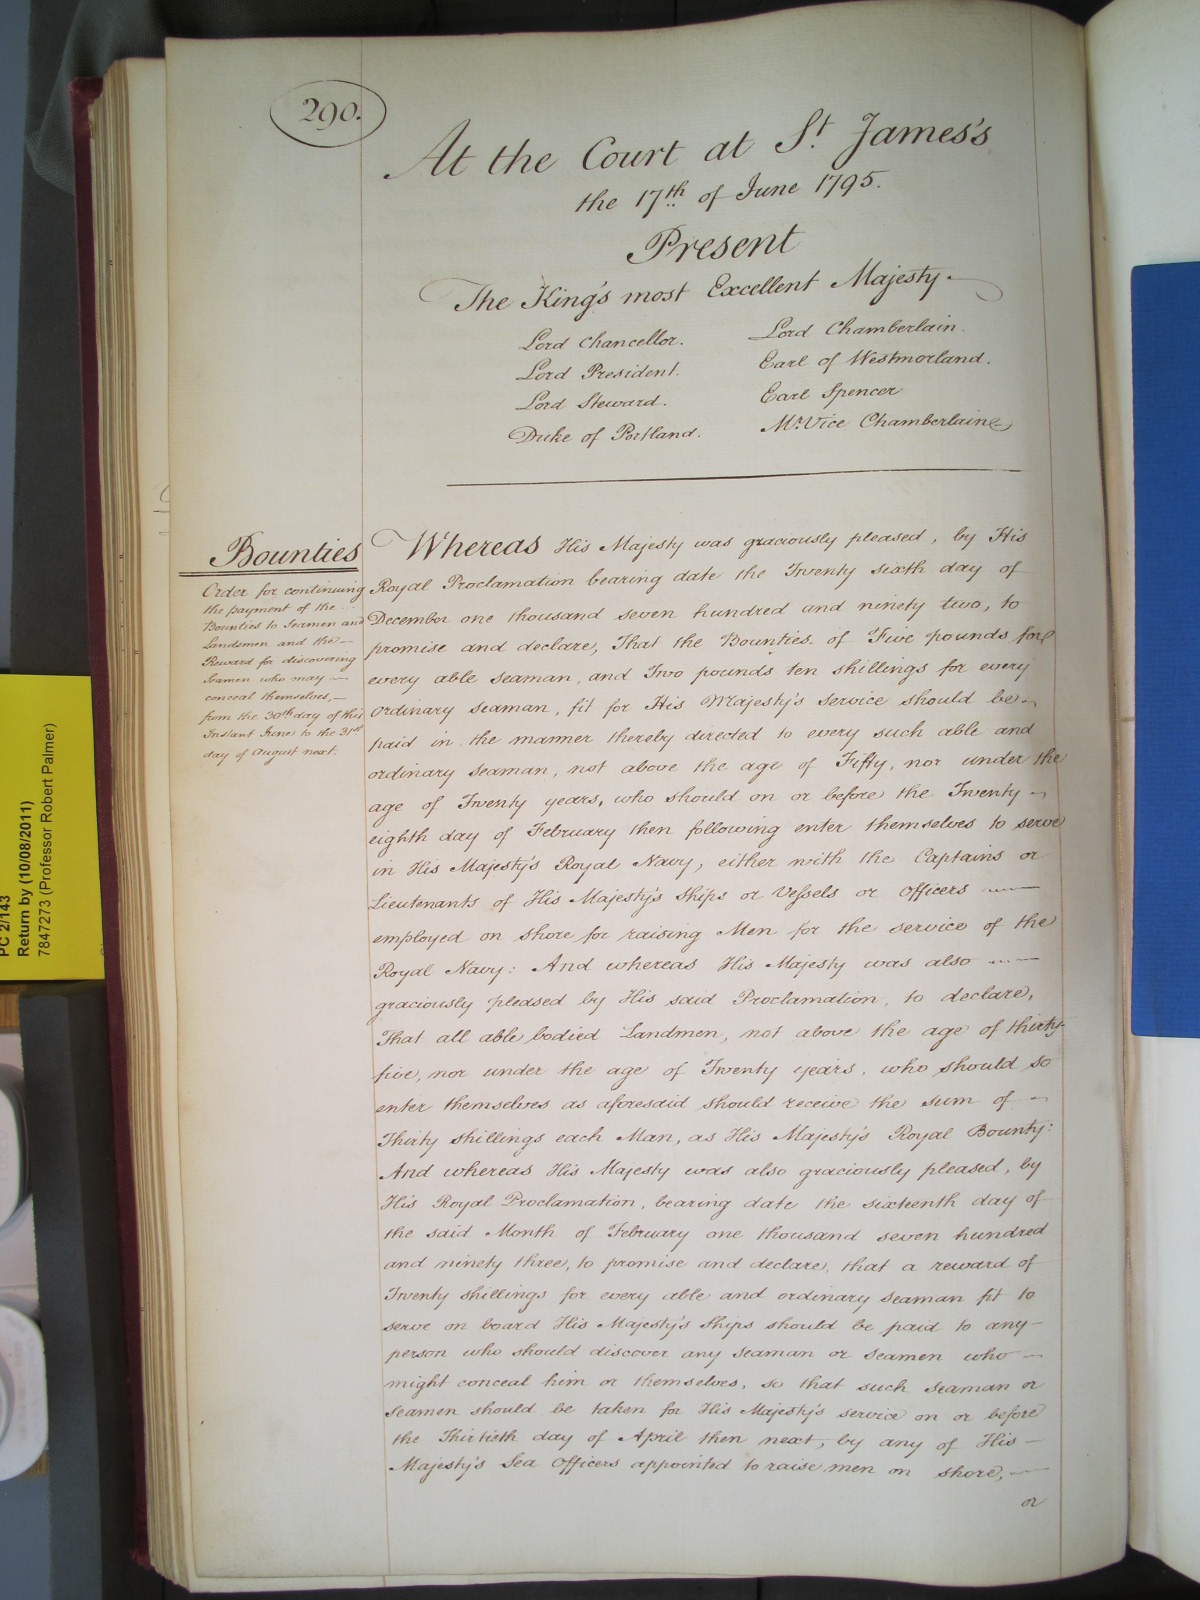 290.
At the Court at St. James's
the 17th of June 1795.
Present
The King's most Excellent Majesty
Lord Chancellor.
Lord President.
Lord Steward.
Duke of Portland.
Lord Chamberlain.
Earl of Westmorland.
Earl Spencer
Mr. Vice Chamberlain
Bounties
Order for continuing
the payment of the
Bounties to Seamen and
Landsmen and the
Reward for discovering
Seamen who may
conceal themselves,
from the 30th day of this
Instant June to the 31st
day of August next.
Whereas His Majesty was graciously pleased, by His
Royal Proclamation bearing date the Twenty sixth day of
December one thousand seven hundred and ninety two, to
promise and declare, That the Bounties of Five pounds for
every able seaman, and Two pounds ten shillings for every
ordinary seaman, fit for His Majesty's service should be
paid in the manner thereby directed to every such able and
ordinary seaman, not above the age of Fifty, nor under the
age of Twenty years, who should on or before the Twenty
eighth day of February then following enter themselves to serve
in His Majesty's Royal Navy, either with the Captains or
Lieutenants of His Majesty's Ships or Vessels or Officers
employed on shore for raising Men for the service of the
Royal Navy: And whereas His Majesty was also
graciously pleased by His said Proclamation, to declare,
That all able bodied Landmen, not above the age of thirty
five, nor under the age of Twenty years, who should so
enter themselves as aforesaid should receive the sum of
Thirty shillings each Man, as His Majesty's Royal Bounty:
And whereas His Majesty was also graciously pleased, by
His Royal Proclamation, bearing date the sixteenth day of
the said Month of February one thousand seven hundred
and ninety three, to promise and declare, that a reward of
Twenty shillings for every able and ordinary seaman fit to
serve on board His Majesty's Ships should be paid to any
person who should discover any seaman or seamen who
might conceal him or themselves, so that such seaman or
seamen should be taken for His Majesty's service on or before
the Thirtieth day of April then next, by any of His
Majesty's Sea Officers appointed to raise men on shore,
or
PC 2/143
Return by (10/08/2011)
7847273 (Professor Robert Palmer)